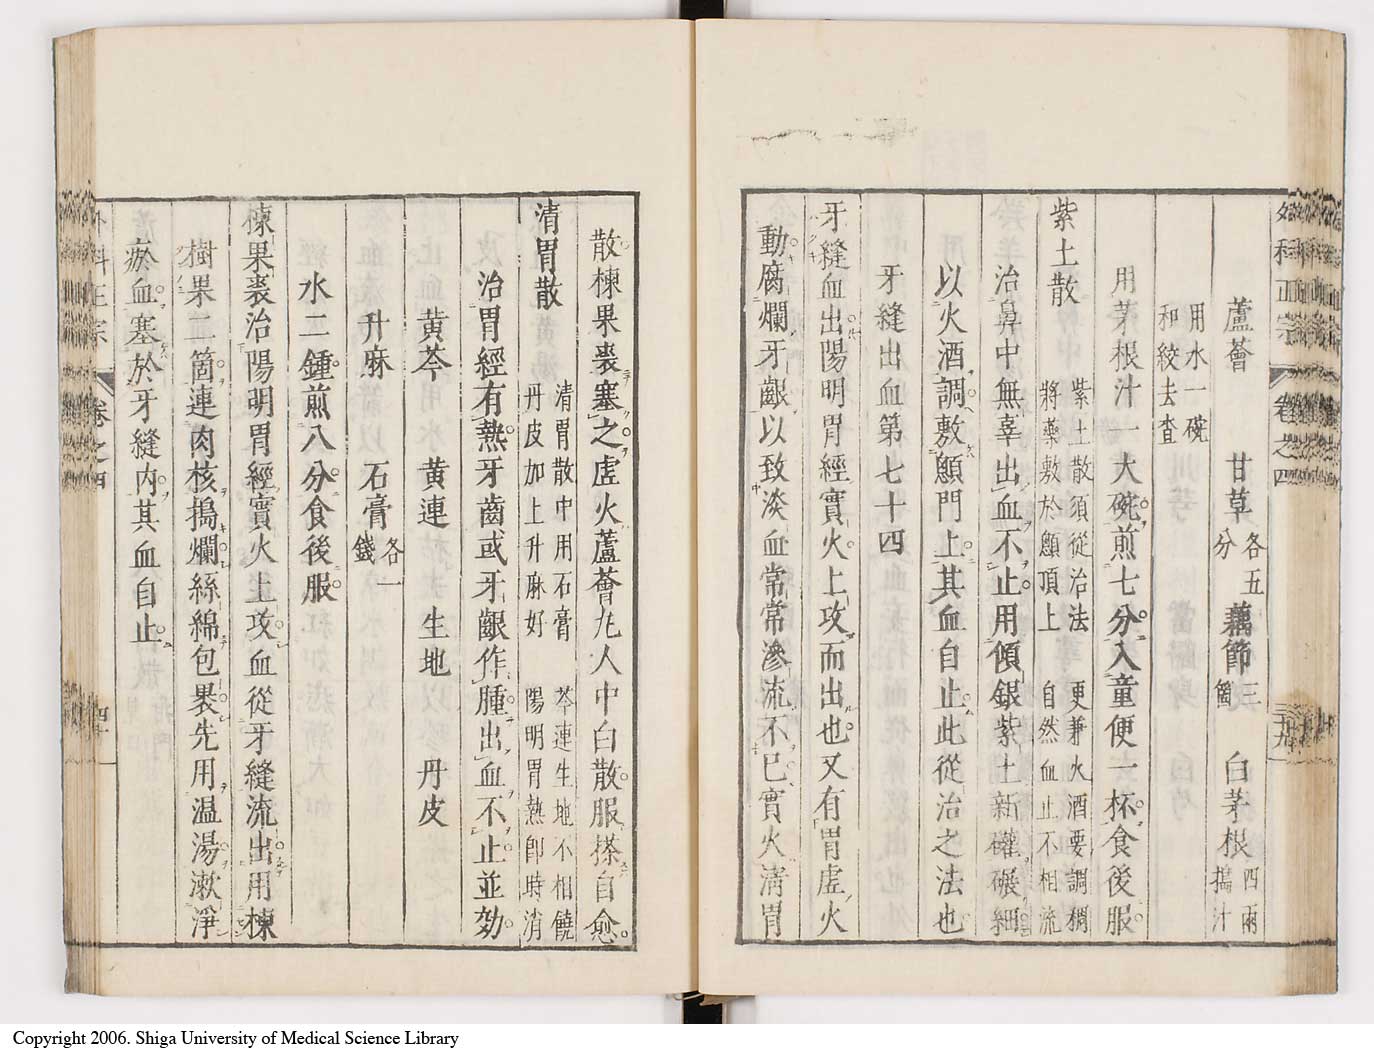 外科正宗 卷之四 三十九
蘆薈 甘草各五分 藕節三箇 白茅根四兩搗汁
用水一碗
和絞去査
用茅根汁一大碗煎七分入童便一杯食後服
紫土散 紫土散須從治法 更兼火酒要調稠
將藥敷於顖頂上 自然血止不相流
治鼻中無辜出血不止用傾銀紫土新礶碾細
以火酒調敷顖門上其血自止此從治之法也
牙縫出血第七十四
牙縫血出陽明胃經實火上攻而出也又有胃虛火
動腐爛牙齦以致淡血常常滲流不已實火淸胃
散楝果裘塞之虛火蘆薈丸人中白散服搽自愈
清胃散 清胃散中用石膏 芩連生地不相饒
丹皮加上升麻好 陽明胃熱卽時消
治胃經有熱牙齒或牙齦作腫出血不止並効
黃芩 黃連 生地 丹皮
升麻 石膏各一錢
水二鍾煎八分食後服
楝果裘治陽明胃經實火上攻血從牙縫流出用楝
樹果二箇連肉核搗爛絲綿包褁先用温湯漱淨
瘀血塞於牙縫內其血自止
外科正宗 卷之四 四十
Copyright 2006. Shiga University of Medical Science Library